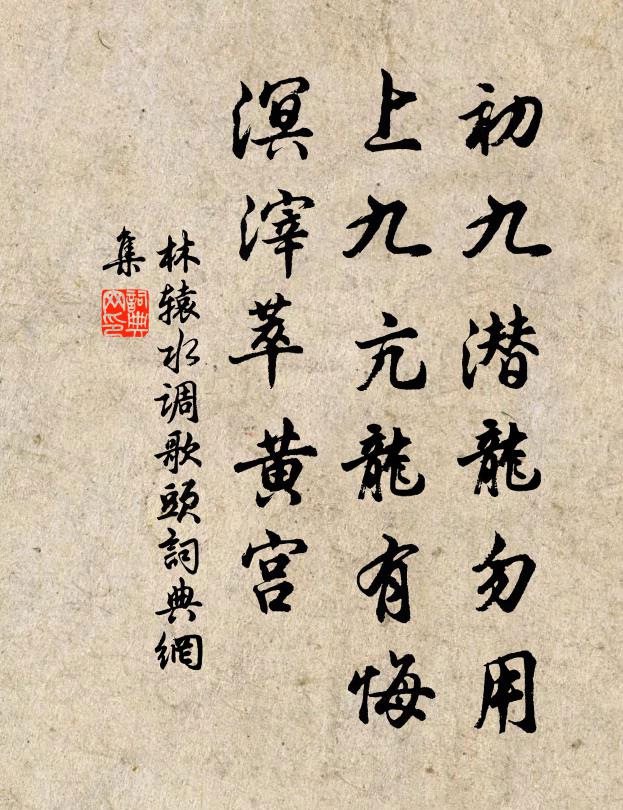 初九潜龍勿用
上九亢龍有悔
溟滓萃黄宫
林辕水调歌頭詞典網
集
詞典
网印